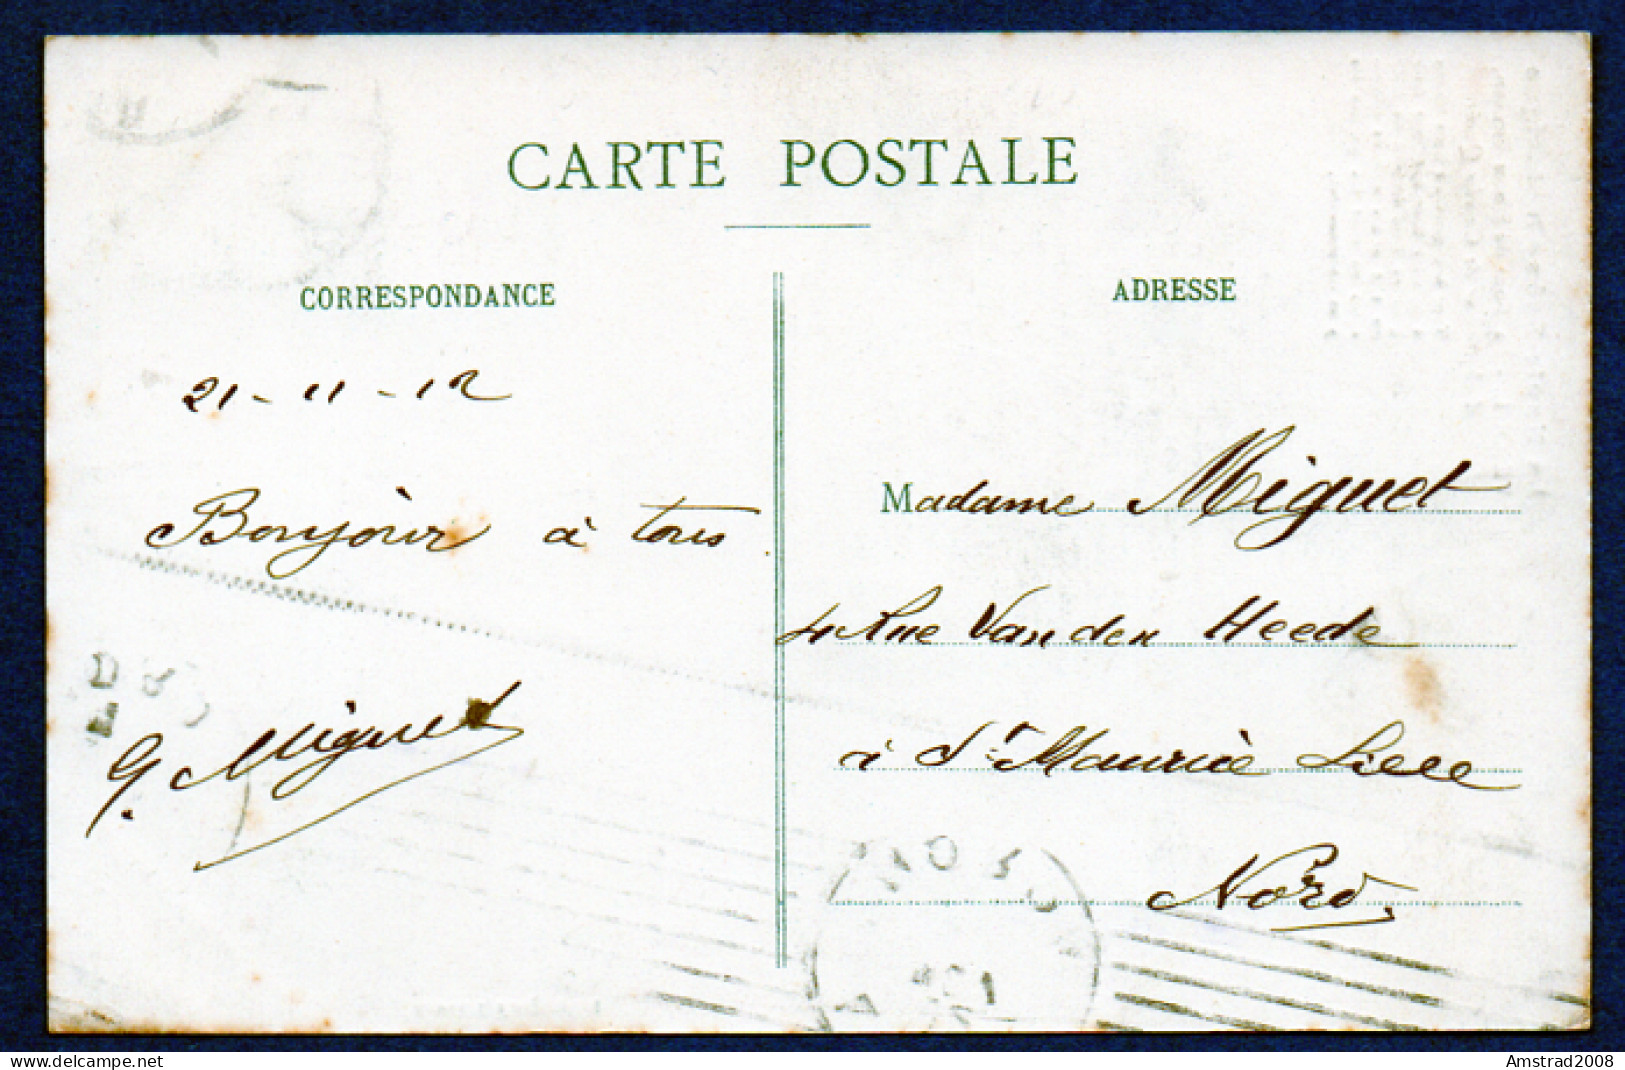 CARTE POSTALE
CORRESPONDANCE
21 - 11 - 12
Bonjour à tous
G. Miguet
ADRESSE
Madame Miguet
4 Rue Van den Heede
à St Maurice Lille
Nord
www.delcampe.net
Amstrad2008